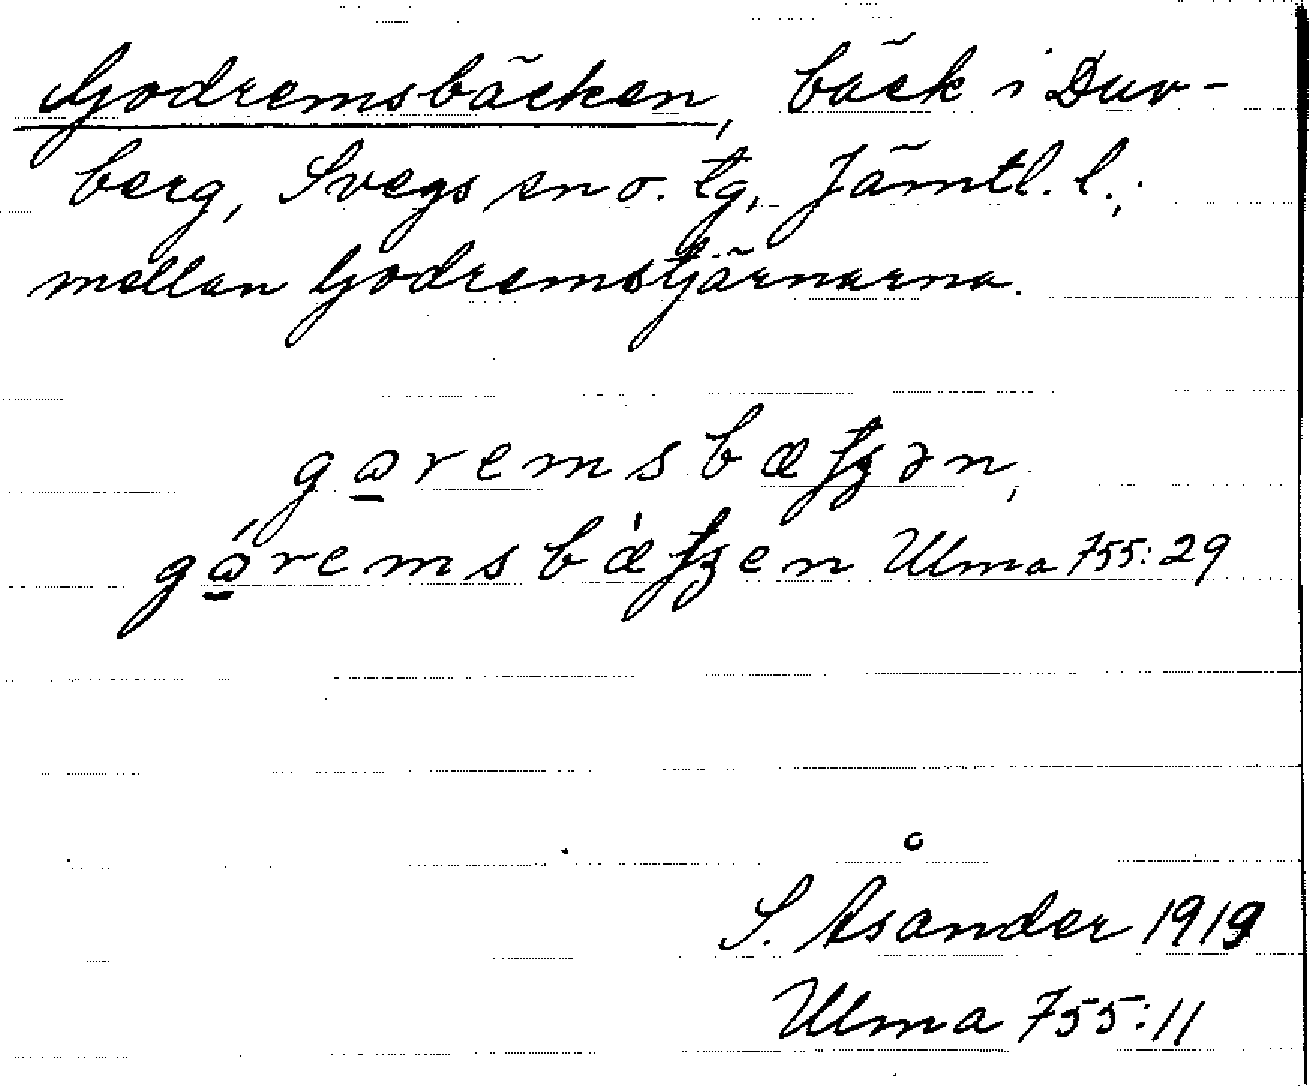 Godremsbäcken, bäck i Duv-
berg, Svegs sn o. tg, Jämtl. l.;
mellan Godremstjärnarna.
gα̱remsbæʃʒən,
gά̱remsbæ̀ʃʒen Ulma 755:29
S. Åsander 1919
Ulma 755:11